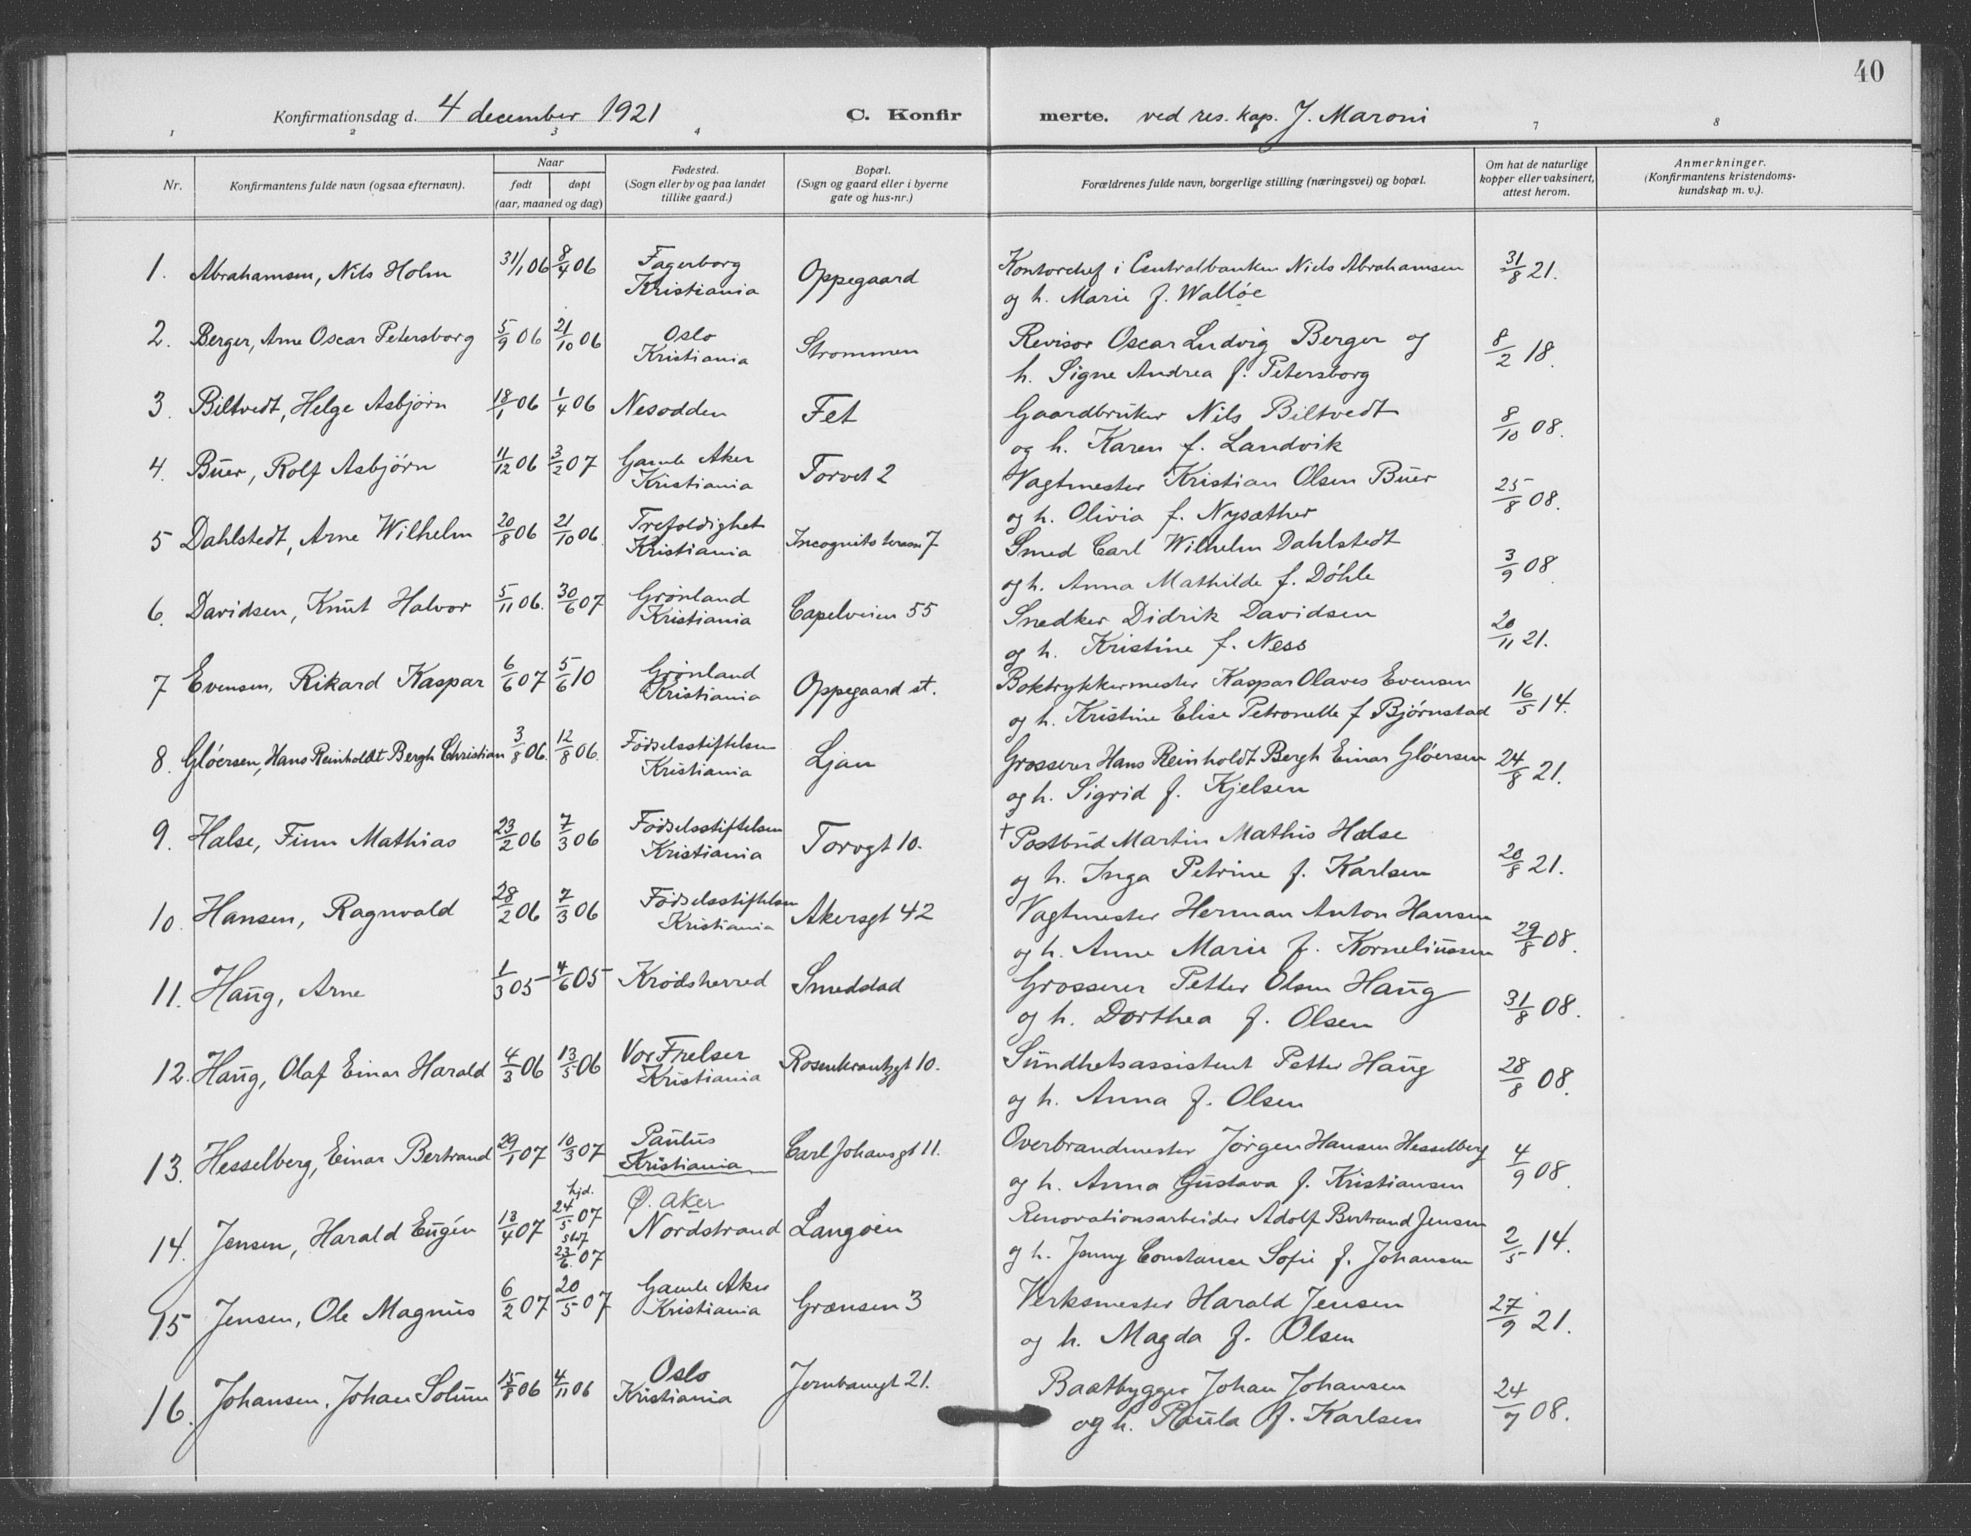 40
Konfirmationsdag d. 4 december 1921 C. Konfirmerte. ved res. kap. J. Maroni
1 2 3 4 7 8
Nr. Konfirmantens fulde navn (ogsaa efternavn). Naar født døpt (aar, maaned og dag) Fødested. (Sogn eller by og paa landet tillike gaard.) Bopæl. (Sogn og gaard eller i byerne gate og hus-nr.) Forældrenes fulde navn, borgerlige stilling (næringsvei) og bopæl. Om hat de naturlige kopper eller vaksinert, attest herom. Anmerkninger. (Konfirmantens kristendomskundskap m. v.).
1. Abrahamsen, Nils Holm 31/1 06 8/4 06 Fagerborg Kristiania Oppegaard Kontorchef i Centralbanken Niels Abrahamsen 31/8 21.
og h. Marie f. Walløe
2. Berger, Arne Oscar Petersborg 5/9 06 21/10 06 Oslo Kristiania Strømmen Revisor Oscar Ludvig Berger og 8/2 18.
h. Signe Andrea f. Petersborg
3. Biltvedt, Helge Asbjørn 18/1 06 1/4 06 Nesodden Fet Gaardbruker Nils Biltvedt 8/10 08.
og h. Karen f. Landvik
4. Buer, Rolf Asbjørn 11/12 06 3/2 07 Gamle Aker Kristiania Torvet 2 Vagtmester Kristian Olsen Buer 25/8 08.
og h. Olivia f. Nysæther
5 Dahlstedt, Arne Wilhelm 20/8 06 21/10 06. Trefoldighet Kristiania Incognito terasse 7 Smed Carl Wilhelm Dahlstedt 3/9 08
og h. Anna Mathilde f. Døhle
6. Davidsen, Knut Halvor 5/11 06. 30/6 07 Grønland Kristiania Capelveien 55 Snedker Didrik Davidsen 20/11 21.
og h. Kristine f. Ness
7 Evensen, Rikard Kaspar 6/6 07 5/6 10 Grønland Kristiania Oppegaard st. Boktrykkermester Kaspar Olaves Evensen 16/5 14.
og h. Kristine Elise Petronelle f Bjørnstad
8. Gløersen, Hans Reinholdt Bergh Christian 3/8 06. 12/8 06. Fødselsstiftelsen Kristiania Ljan Grosserer Hans Reinholdt Bergh Einar Gløersen 24/8 21.
og h. Sigrid f. Kjelsen
9. Halse, Finn Mathias 23/2 06 7/3 06 Fødselsstiftelsen Kristiania Torvgt 10. † Postbud Martin Mathis Halse 20/8 21.
og h. Inga Petrine f. Karlsen
10. Hansen, Ragnvald 28/2 06 7/3 06 Fødselsstiftelsen Kristiania Akersgt 42 Vagtmester Herman Anton Hansen 29/8 08.
og h. Anne Marie f. Korneliussen
11. Haug, Arne 1/3 05 4/6 05 Krødsherred Smedstad Grosserer Petter Olsen Haug 31/8 08.
og h. Dorthea f. Olsen
12. Haug, Olaf Einar Harald 4/3 06 13/5 06 Vor Frelser Kristiania Rosenkrantzgt 10. Sundhetsassistent Petter Haug 28/8 08.
og h. Anna f. Olsen
13. Hesselberg, Einar Bertrand 29/1 07 10/3 07 Paulus Kristiania Carl Johansgt 11. Overbrandmester Jørgen Hansen Hesselberg 4/9 08.
og h. Anna Gustava f. Kristiansen
14. Jensen, Harald Eugén 13/4 07 hjd. 24/5 07 stdf 23/6. 07 Ø. Aker Nordstrand Langøen Renovationsarbeider Adolf Bertrand Jensen 2/5 14.
og h. Jenny Constance Sofie f. Johansen
15 Jensen, Ole Magnus 6/2 07 20/5 07 Gamle Aker Kristiania Grænsen 3 Verksmester Harald Jensen 27/9 21.
og h. Magda f. Olsen
16. Johansen, Johan Solum 15/8 06 4/11 06 Oslo Kristiania Jernbanegt 21. Baatbygger Johan Johansen 24/7 08.
og h. Paula f. Karlsen